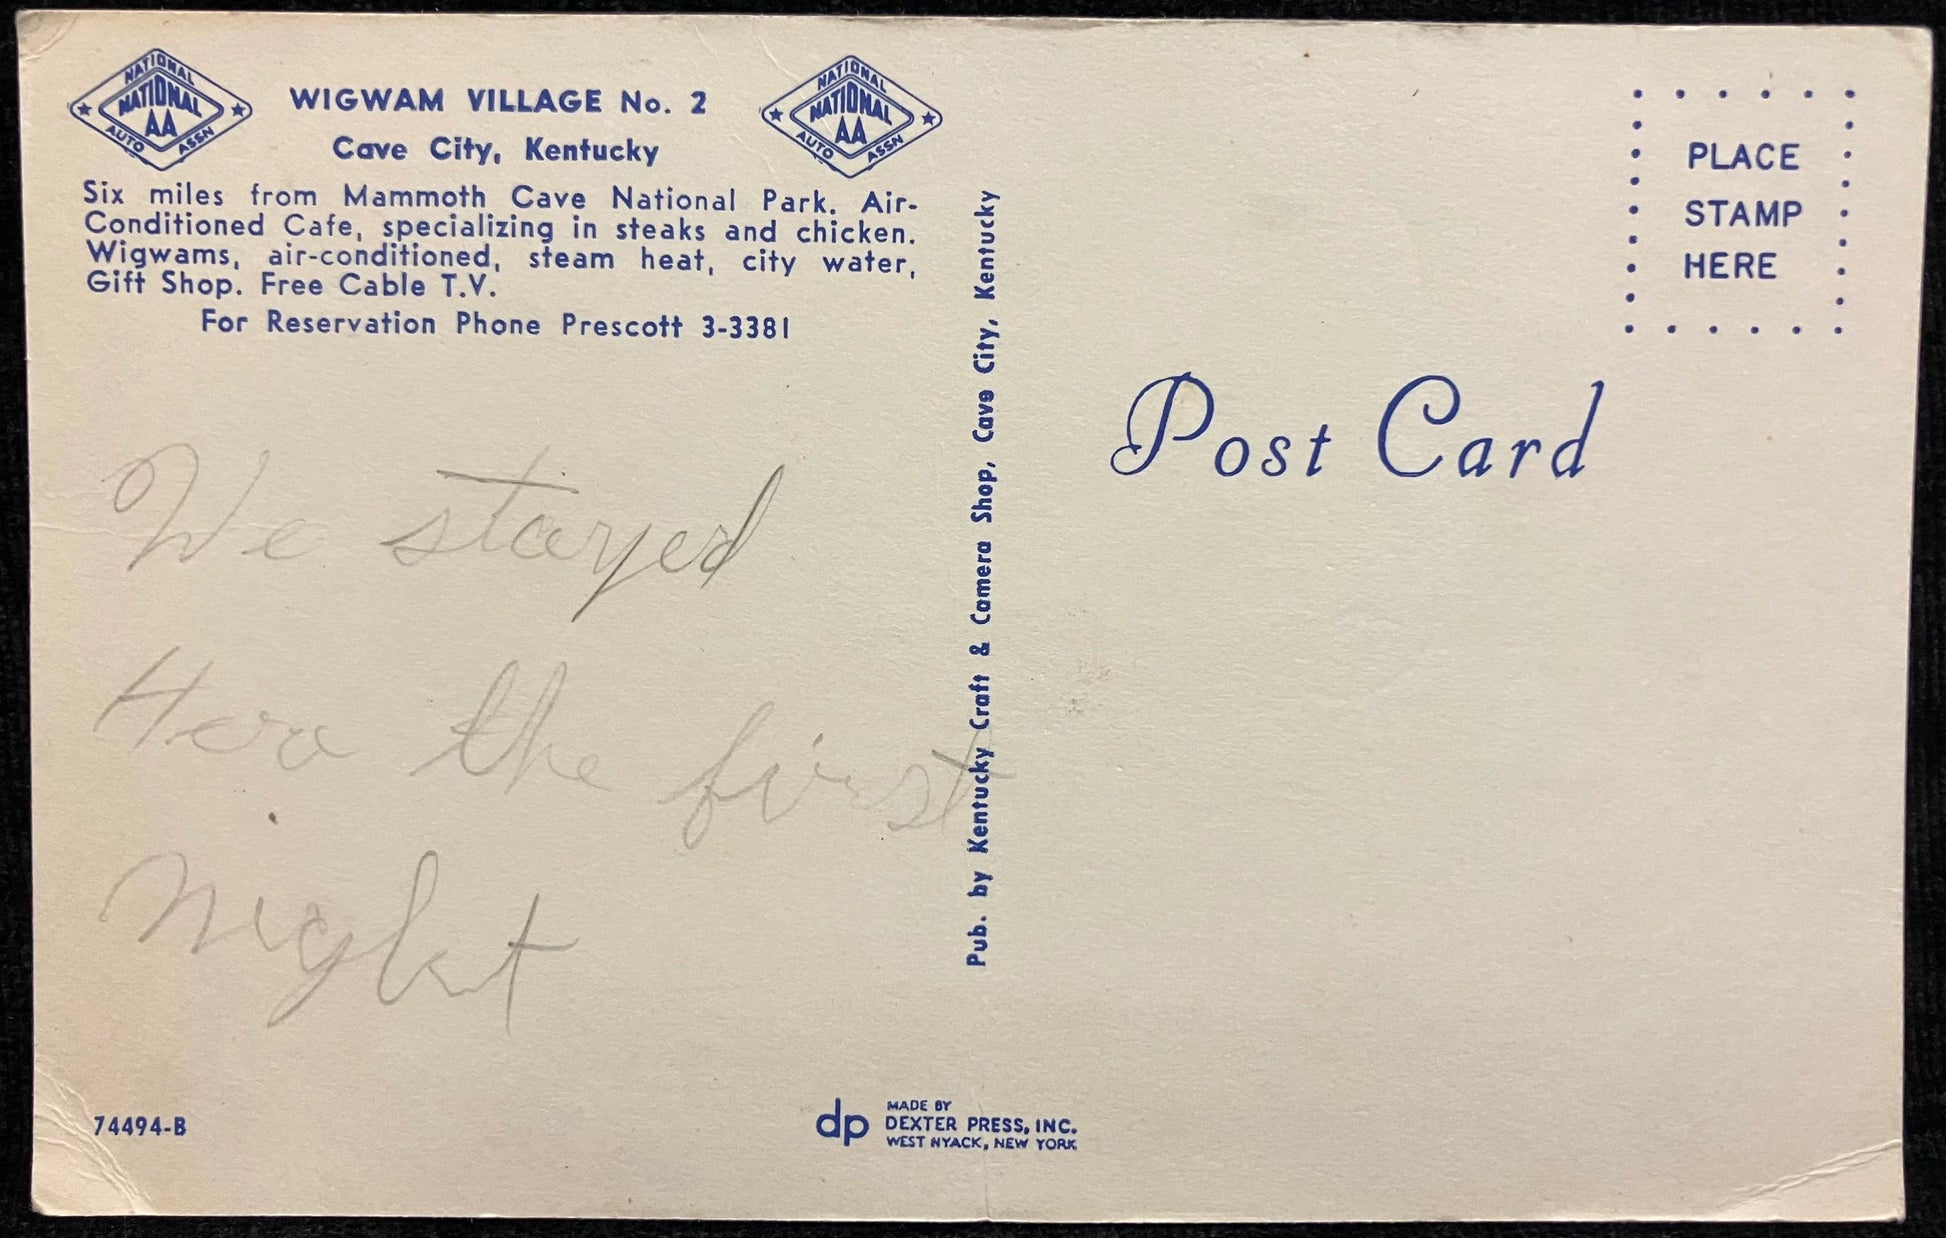 NATIONAL
NATIONAL
AA
AUTO ASSN
WIGWAM VILLAGE No. 2
Cave City, Kentucky
NATIONAL
NATIONAL
AA
AUTO ASSN
Six miles from Mammoth Cave National Park. Air-
Conditioned Cafe, specializing in steaks and chicken.
Wigwams, air-conditioned, steam heat, city water,
Gift Shop. Free Cable T.V.
For Reservation Phone Prescott 3-3381
We stayed
Here the first
night
74494-B
Pub. by Kentucky Craft & Camera Shop, Cave City, Kentucky
dp
MADE BY
DEXTER PRESS, INC.
WEST NYACK, NEW YORK
PLACE
STAMP
HERE
Post Card